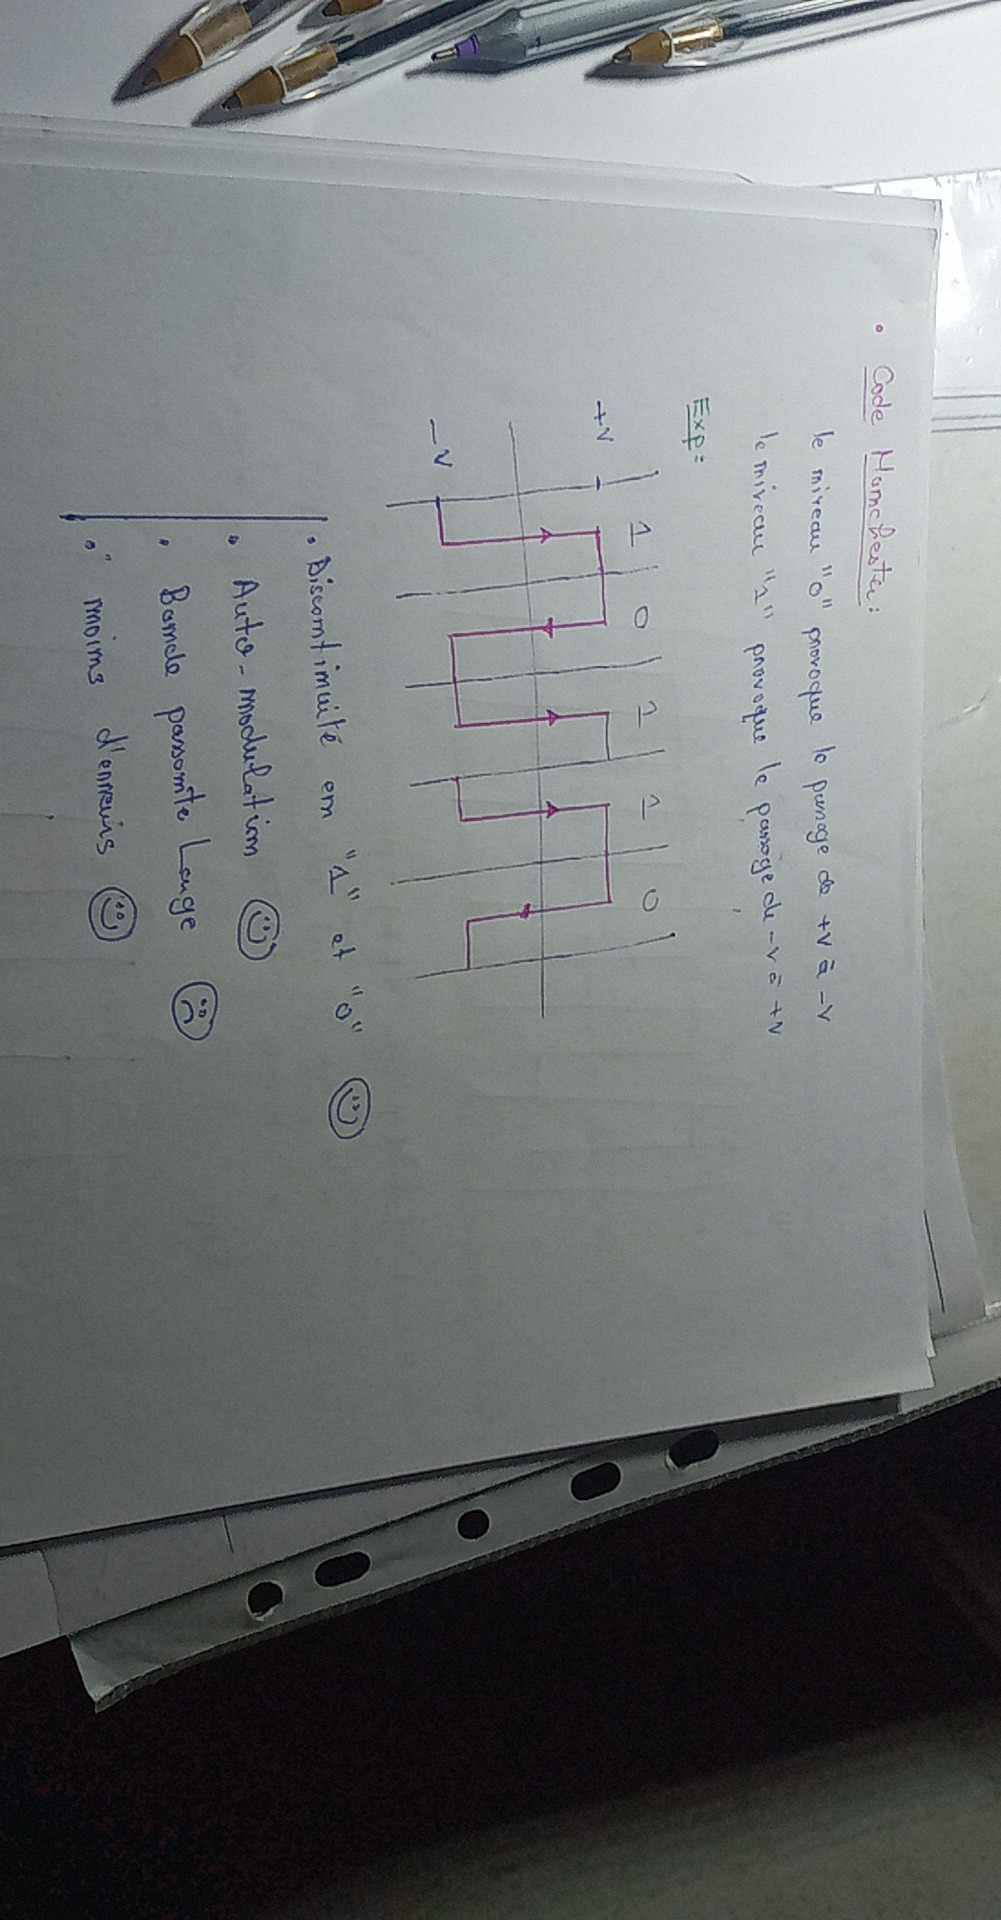 • Code Manchester:
le niveau "0" provoque le passage de +V à -V
le niveau "1" provoque le passage de -V à +V
Exp:
1 0 1 1 0
+V
-V
• Discontinuité en "1" et "0"
• Auto-modulation
• Bande passante Large
• moins d'erreurs